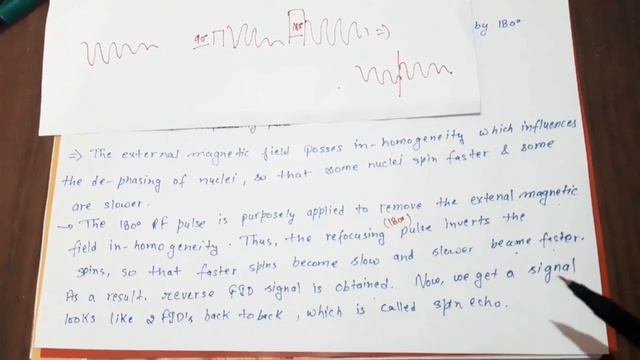 90° 180° =>
by 180°
=> The external magnetic field posses in-homogeneity which influences
the de-phasing of nuclei, so that some nuclei spin faster & some
are slower.
→ The 180° RF pulse is purposely applied to remove the extenal magnetic
field in-homogeneity. Thus, the refocusing (180°) pulse inverts the
spins, so that faster spins become slow and slower became faster.
As a result. reverse FID signal is obtained. Now, we get a signal
looks like 2 FID's back to back, which is called spin echo.